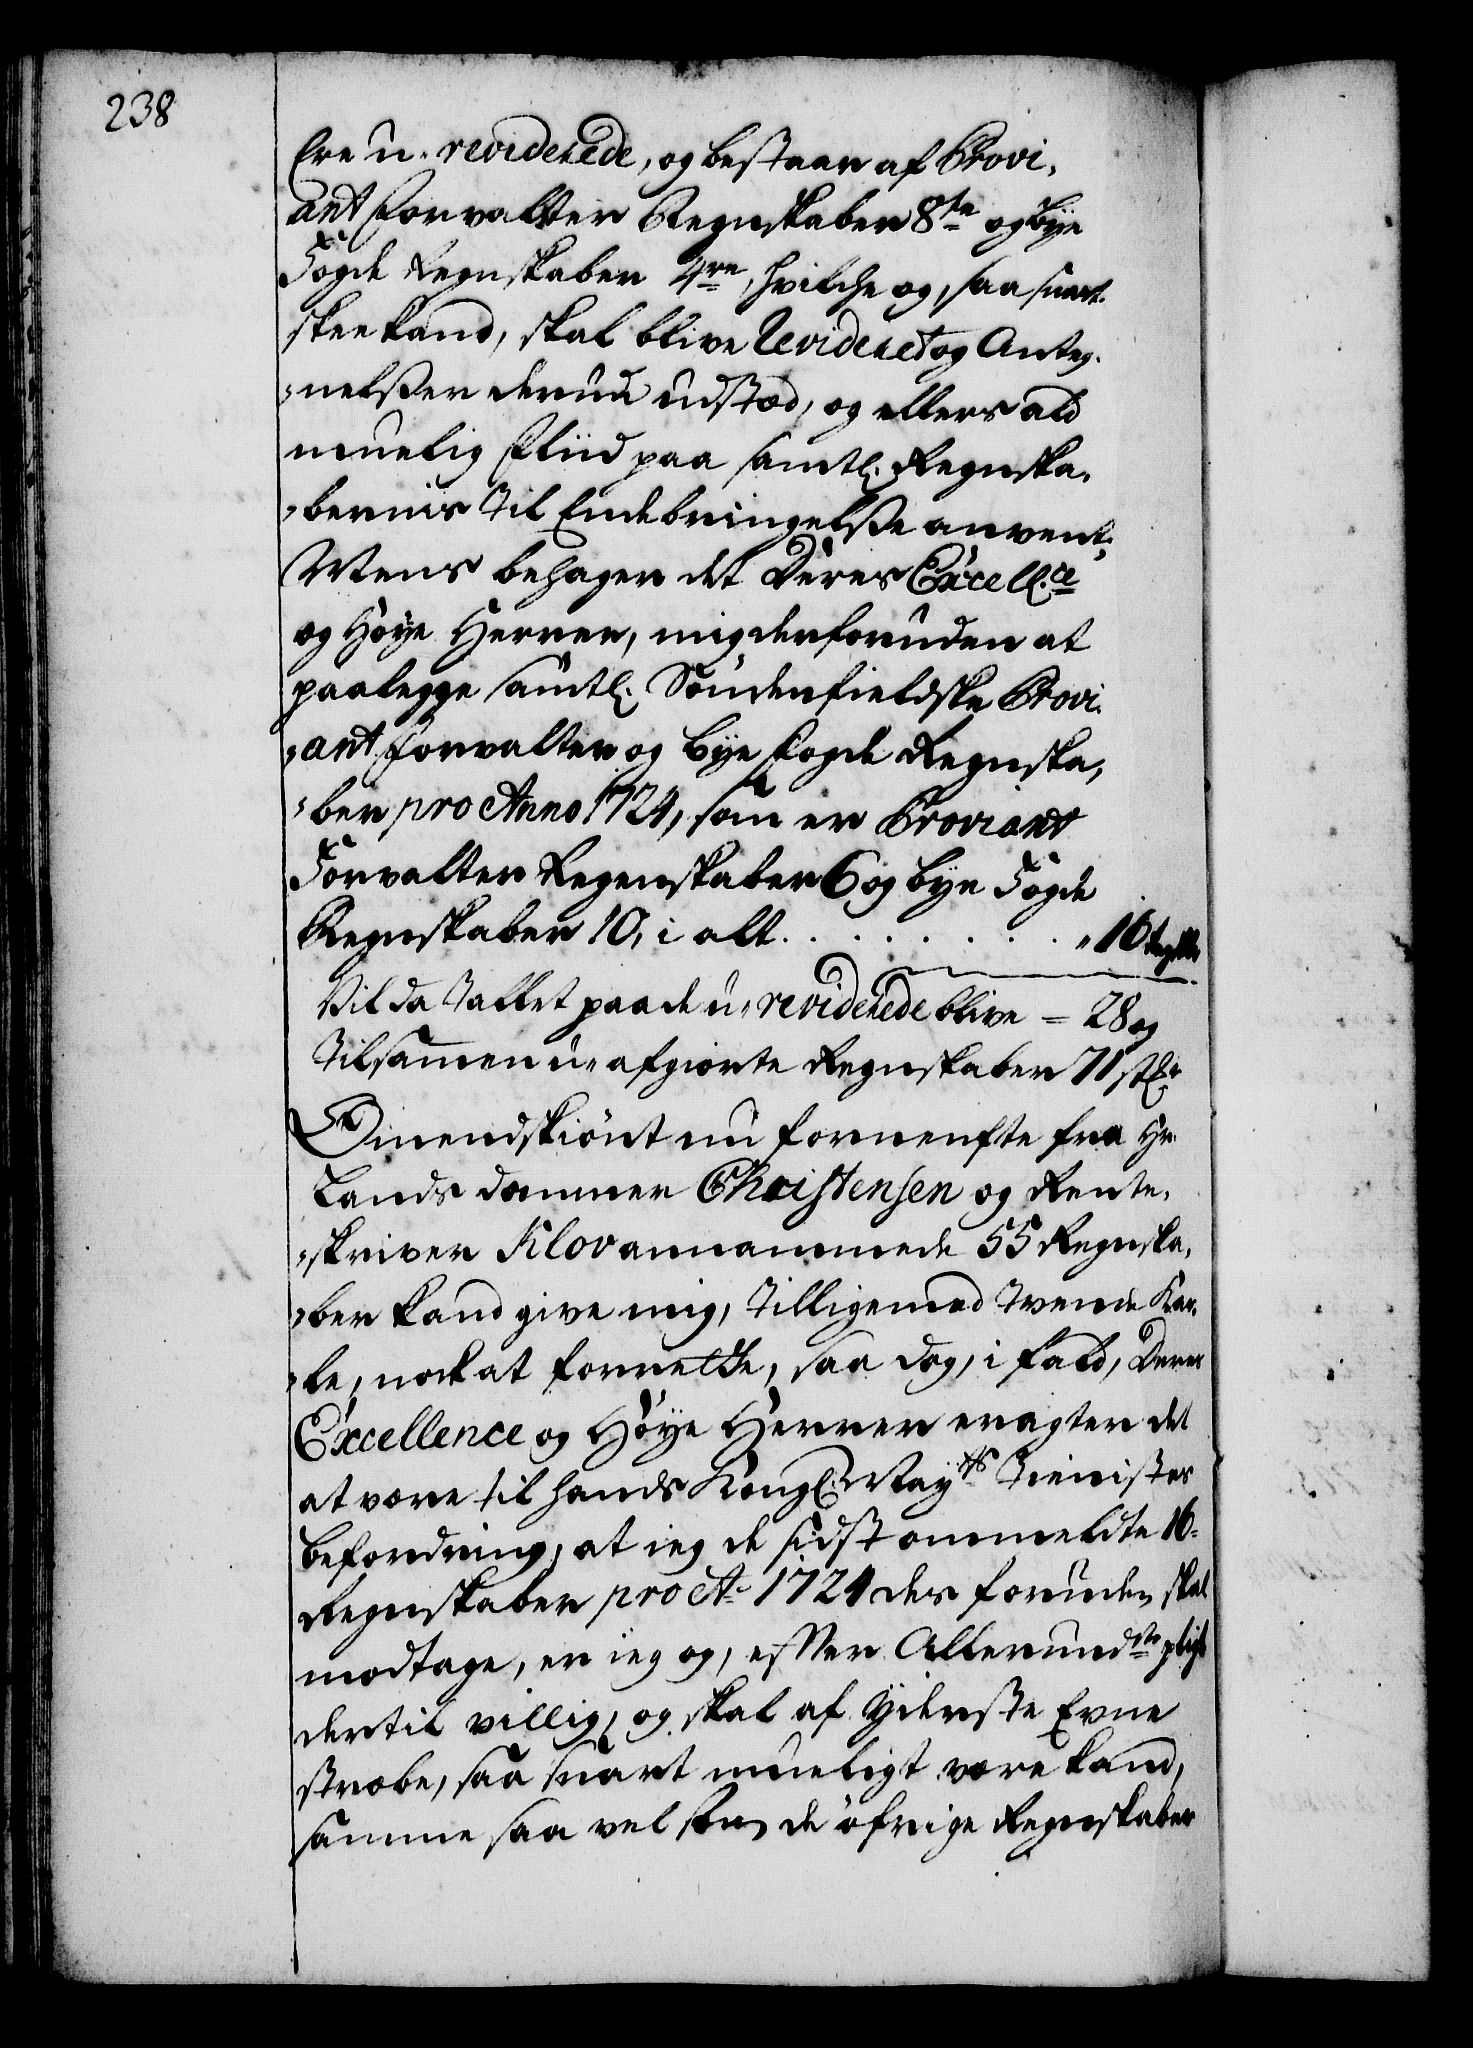 238
Ere u-reviderede, og bestaar af Provi,
ant forvalter Regnskaber 8te og bye
Fogde Regnskaber 4re, hvilche og, saa snart
skee kand, skal blive Revideret og Anteg.
„nelsser derudi udstæd, og ellers ald
muelig fliid paa samtl. Regnska,
„bernis til Endebringelsse anvent.
Mens behager det Deres Excell.ce
og Høye Herrer, mig derforuden at
paalegge samtl. Søndenfieldske Provi.
„ant forvalter og bye fogde Regnska,
„ber pro Anno 1724, som er Proviant
Forvalter Regenskaber 6 og bye Fogde
Regnskaber 10, i alt . . . . . . . . „ 16
Vil da Tallet paa de u-reviderede blive = 28 og
Tilsammen u-afgiorte Regnskaber 71 stkr
Omendskiønt nu fornenfte fra Hr.
Landsdommer Christensen og Rente,
„skriver Klov annammede 55 Regnska,
„ber kand give mig, tilligemed tvende Kar,
„le, nock at forrette, saa dog, i fald, Deres
Excellence og Høye Herrer eragter det
at være til hands Kongl. Mayts Tienistes
befordring, at ieg de sidst ommeldte 16-
Regnskaber pro Ao 1724 der foruden skal
modtage, er ieg og, efter Allerundste pligt
dertil villig, og skal af yderste Evne
stræbe, saa snart mueligt være kand,
samme saa vel som de øfrige Regnskaber